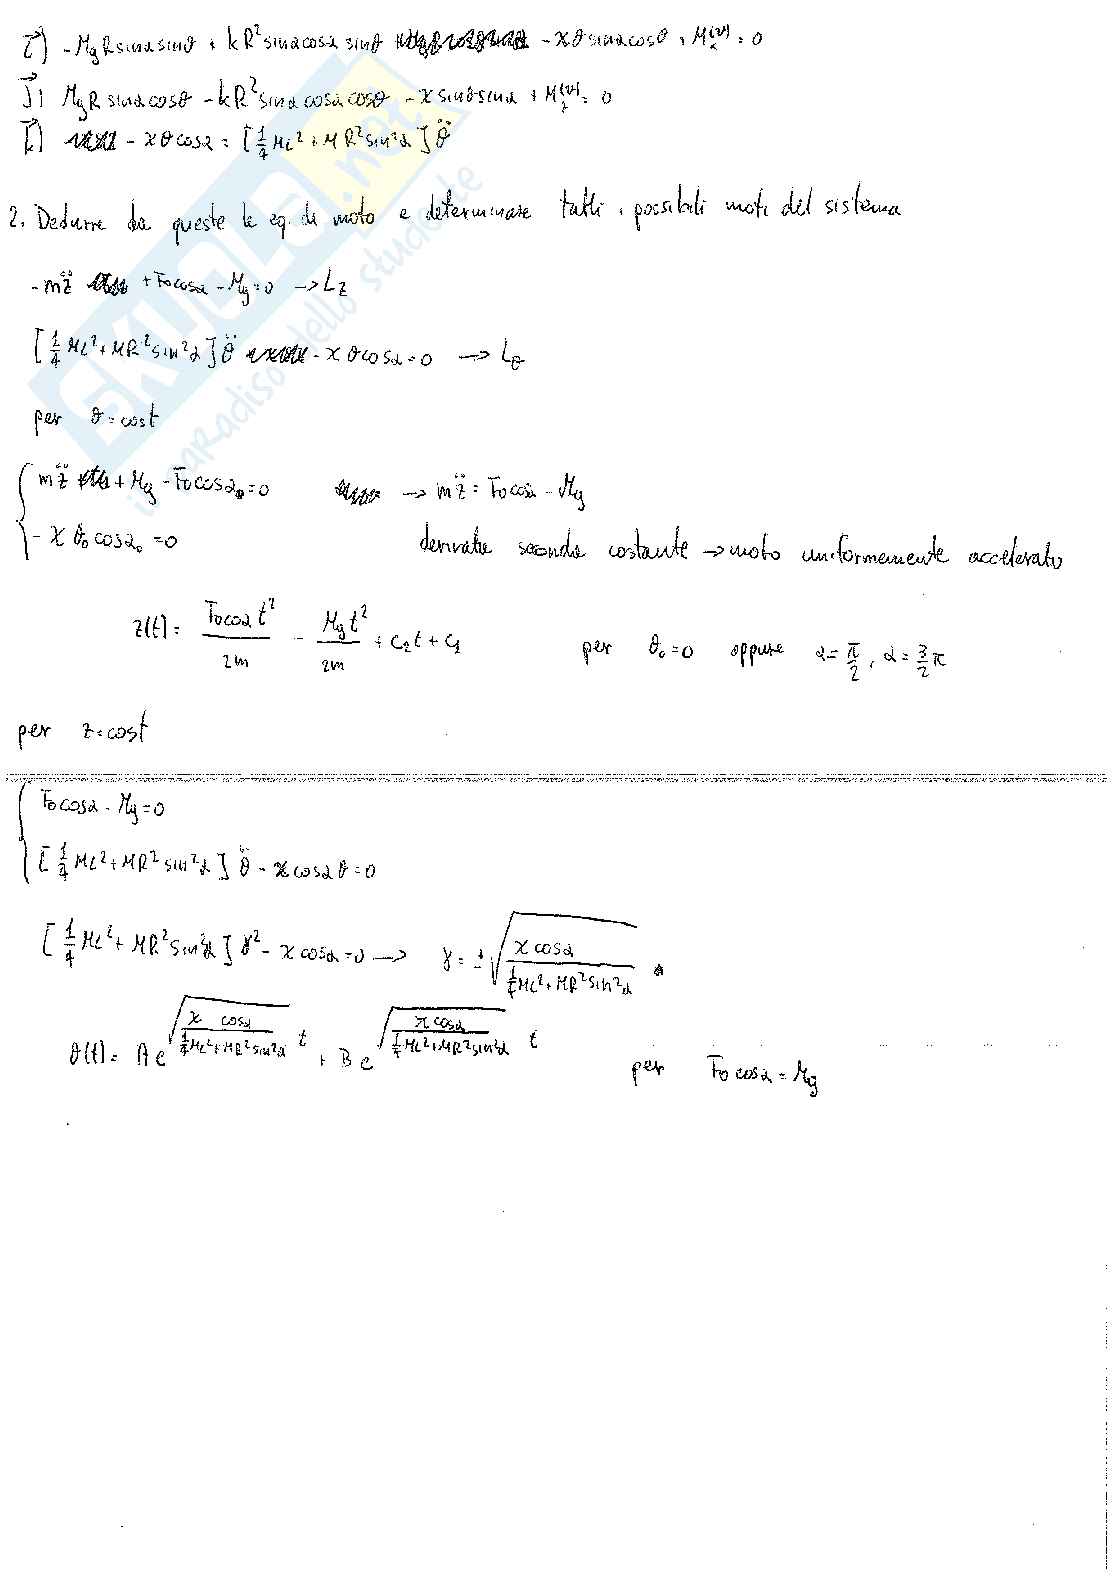 i⃗) -MgR sinα sinθ + kR² sinα cosα sinθ - χθ sinα cosθ + Mₓ⁽ᵛ⁾ = 0
j⃗) MgR sinα cosθ - kR² sinα cosα cosθ - χ sinθ sinα + M₂⁽ᵛ⁾ = 0
k⃗) - χθ cosα = [1/4 ML² + MR² sin²α] θ̈
2. Dedurre da queste le eq. di moto e determinare tutti i possibili moti del sistema
-mz̈ + F₀cosα - Mg = 0 → L_z
[1/4 ML² + MR² sin²α] θ̈ - χ θ cosα = 0 → L_θ
per θ = cost
mz̈ + Mg - F₀cosα₀ = 0 → mz̈ = F₀cosα - Mg
- χ θ₀ cosα₀ = 0 derivata seconda costante → moto uniformemente accelerato
z(t) = F₀cosα t²/2m - Mg t²/2m + c₂t + c₁ per θ₀ = 0 oppure α = π/2, α = 3/2 π
per z = cost
F₀cosα - Mg = 0
[1/4 ML² + MR² sin²α] θ̈ - χ cosα θ = 0
[1/4 ML² + MR² sin²α] γ² - χ cosα = 0 → γ = ± √(χ cosα / (1/4 ML² + MR² sin²α))
θ(t) = A e^(√(χ cosα / (1/4 ML² + MR² sin²α)) t) + B e^(√(χ cosα / (1/4 ML² + MR² sin²α)) t) per F₀cosα = Mg
SKUOLA.net
il paradiso dello studente